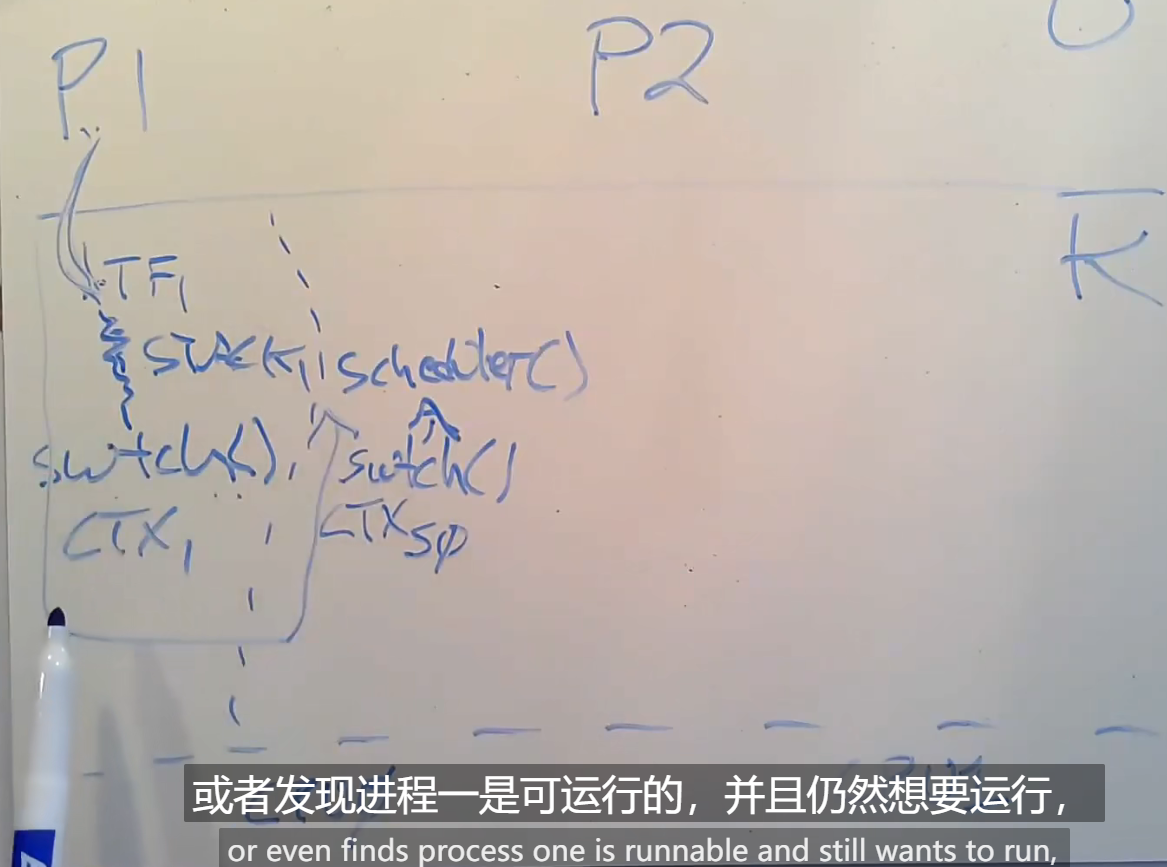 P1 P2 U
K
TF1
STACK1 scheduler()
swtch() swtch()
CTX1 CTXS0
或者发现进程一是可运行的，并且仍然想要运行，
or even finds process one is runnable and still wants to run,